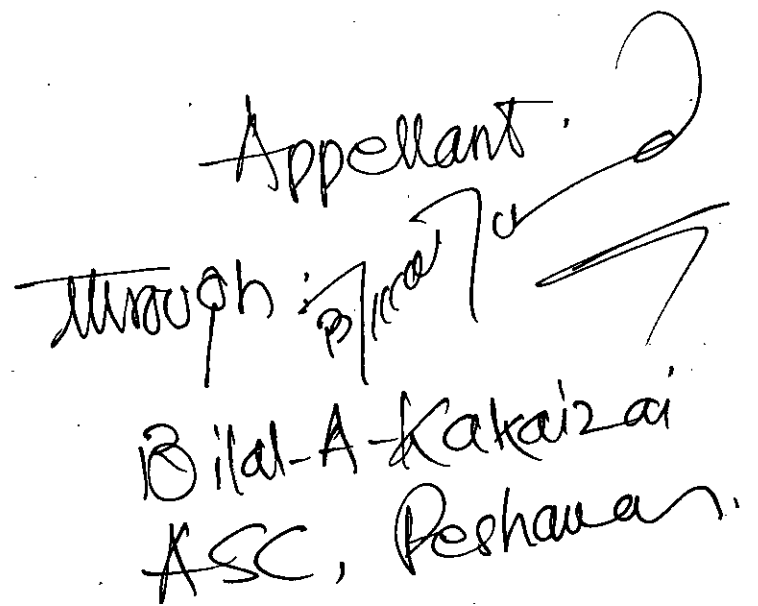 Appellant.
Through:
Bilal-A-Kakaizai
ASC, Peshawar.